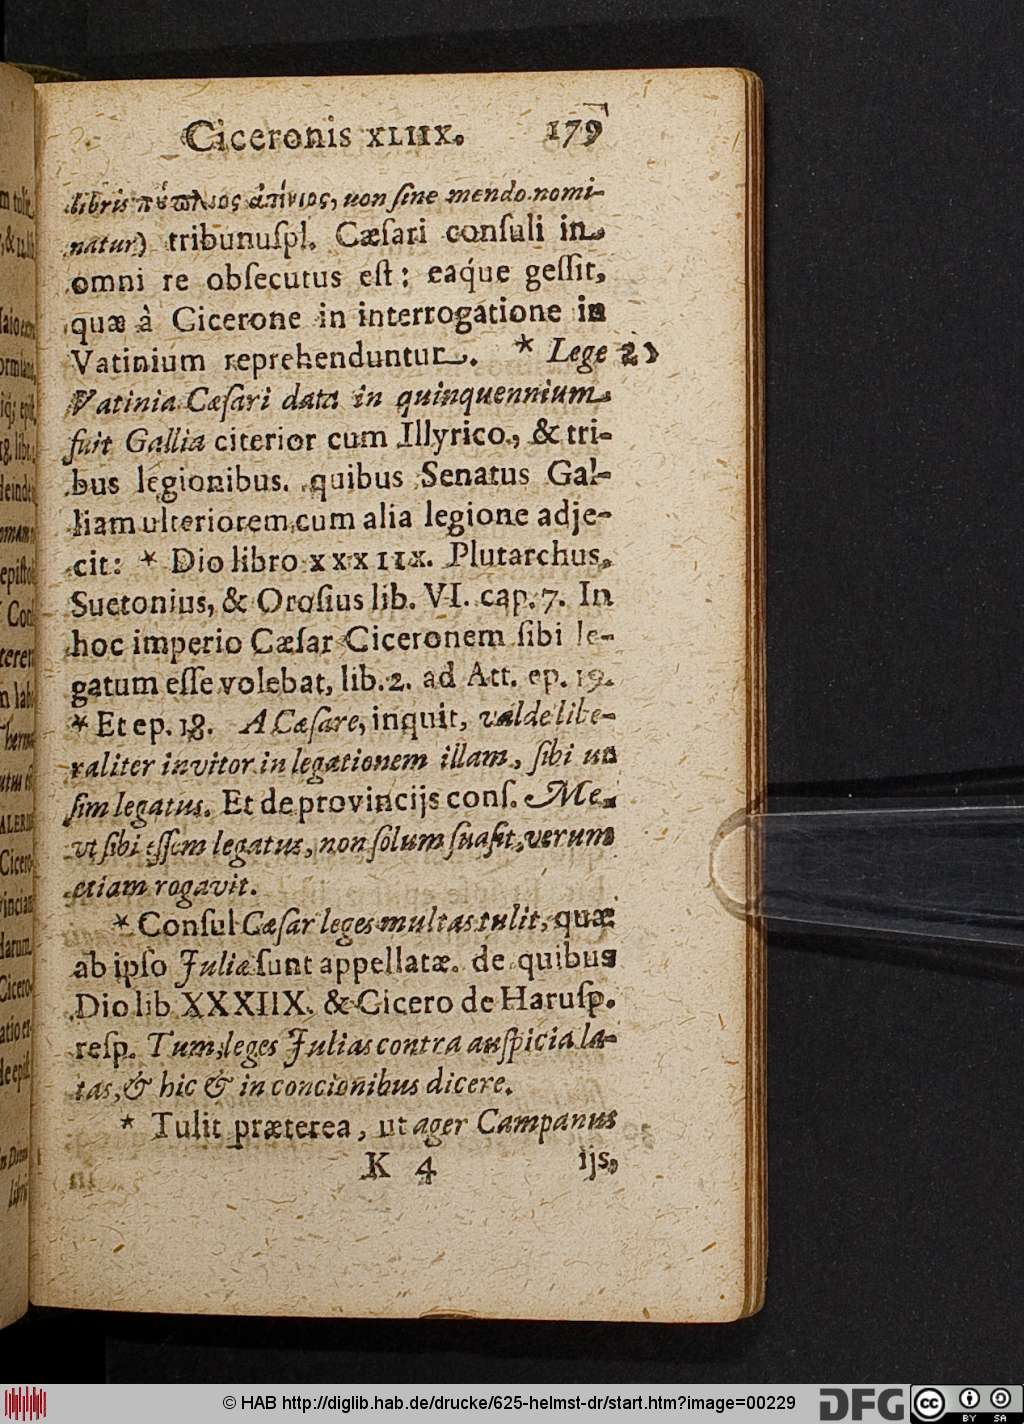 Ciceronis XLIIX. 179
libris πύπλιος ἀπίνιος, non ſine mendo nomi-
natur) tribunuſpl. Cæſari conſuli in
omni re obſecutus eſt: eaq́ue geſſit,
quæ à Cicerone in interrogatione in
Vatinium reprehenduntur. * Lege 2)
Vatinia Cæſari data in quinquennium
fuit Gallia citerior cum Illyrico, & tri-
bus legionibus. quibus Senatus Gal-
liam ulteriorem cum alia legione adje-
cit: * Dio libro XXXIIX. Plutarchus,
Suetonius, & Oroſius lib. VI. cap. 7. In
hoc imperio Cæſar Ciceronem ſibi le-
gatum eſſe volebat, lib. 2. ad Att. ep. 19.
* Et ep. 18. A Cæſare, inquit, valde libe-
raliter invitor in legationem illam, ſibi ut
ſim legatus. Et de provincijs conſ. Me,
ut ſibi eſſem legatus, non ſolum ſuaſit, verum
etiam rogavit.
* Conſul Cæſar leges multas tulit, quæ
ab ipſo Juliæ ſunt appellatæ. de quibus
Dio lib XXXIIX. & Cicero de Haruſp.
reſp. Tum leges Julias contra auſpicia la-
tas, & hic & in concionibus dicere.
* Tulit præterea, ut ager Campanus
K 4 ijs,
© HAB http://diglib.hab.de/drucke/625-helmst-dr/start.htm?image=00229
DFG
cc
BY SA